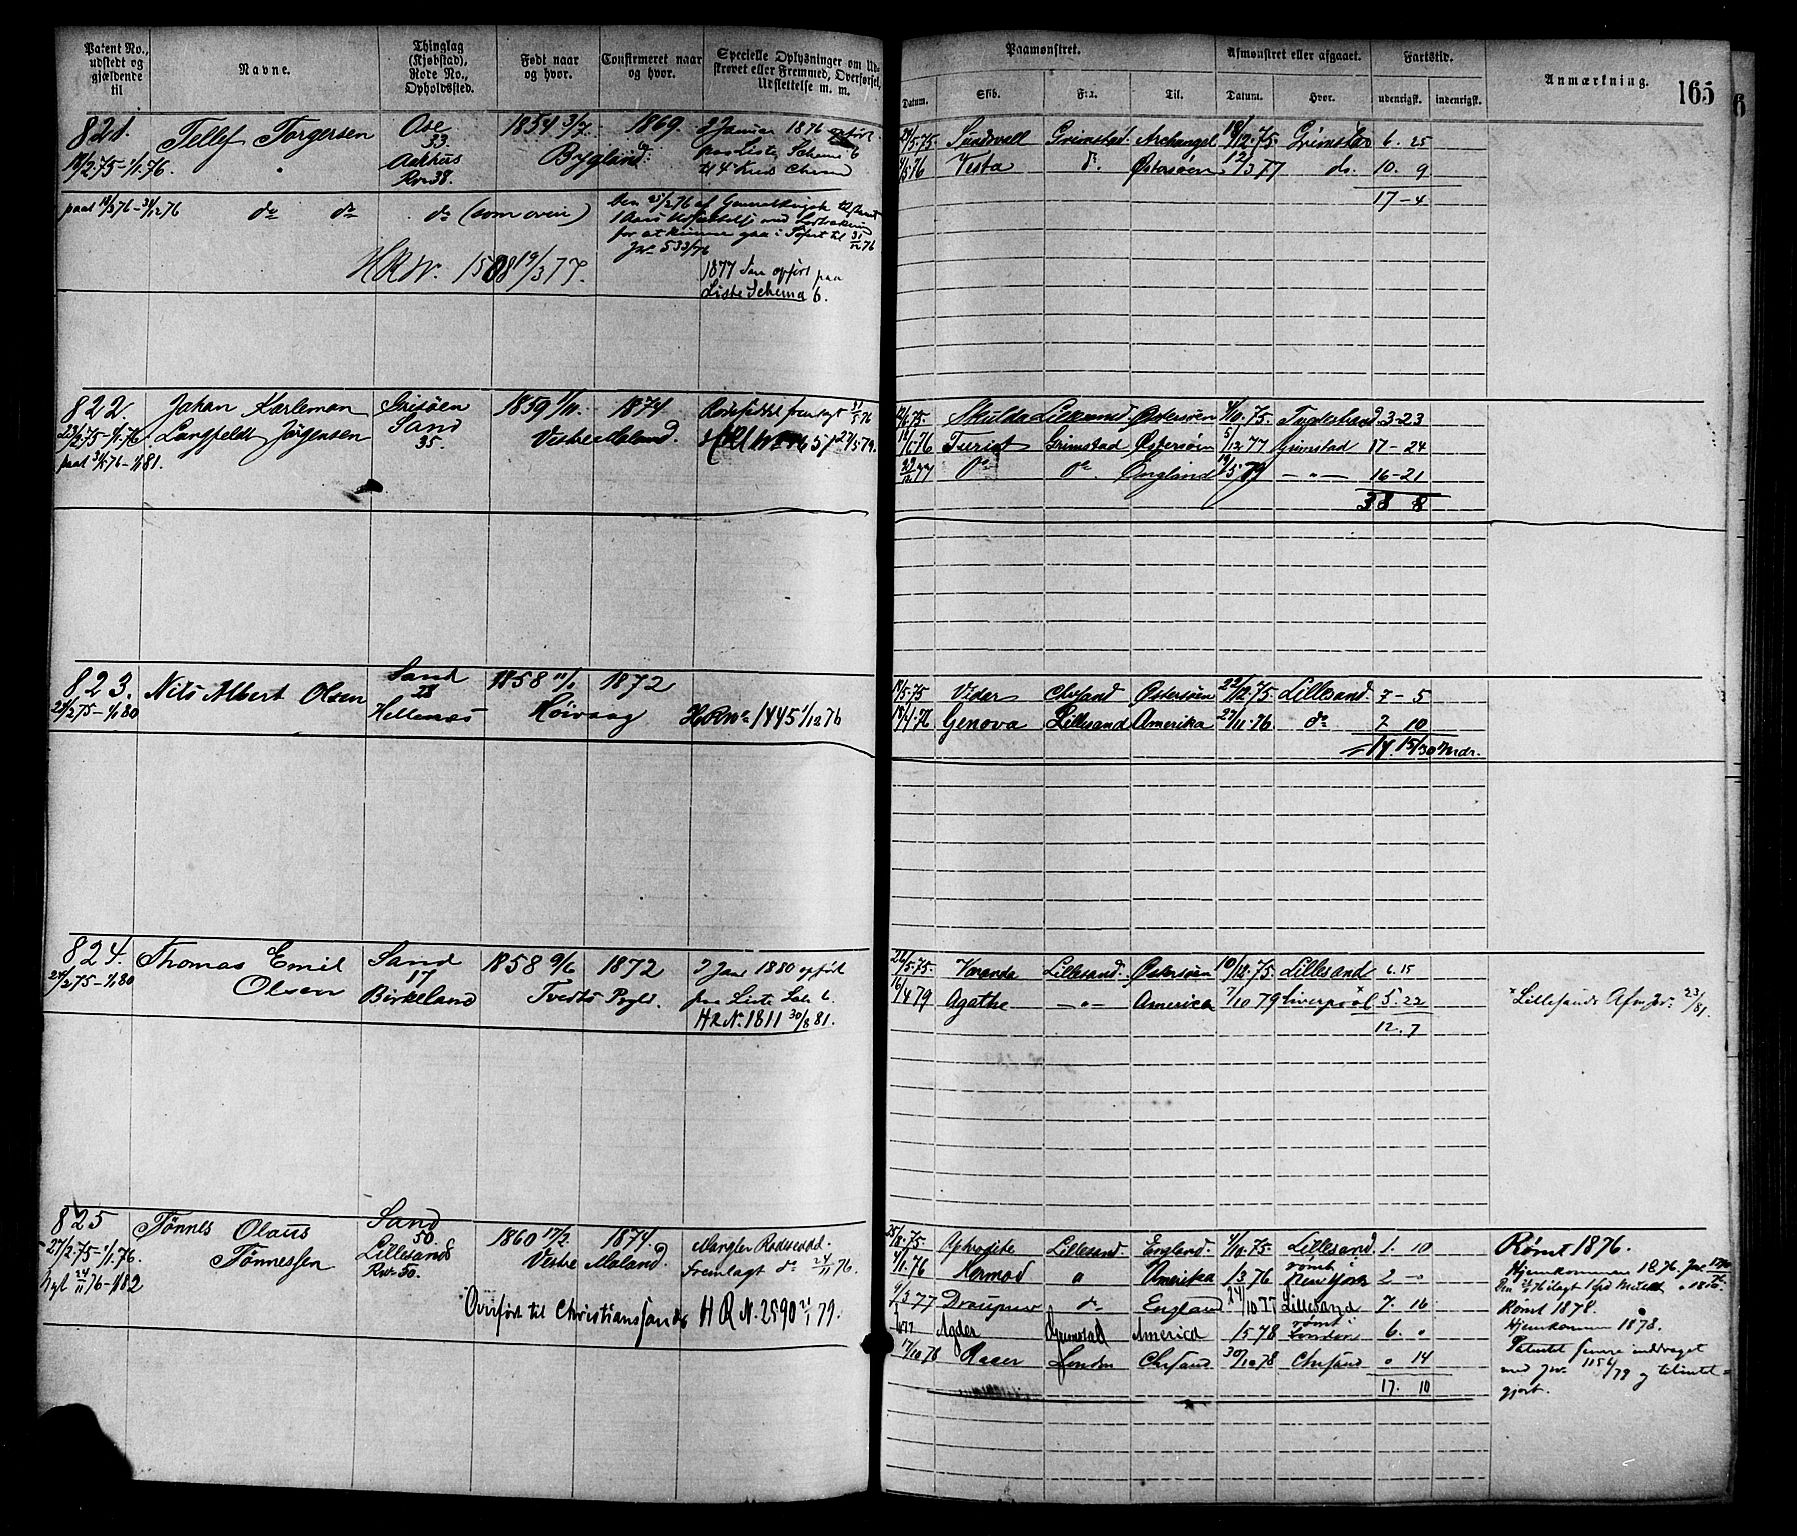 Patent No., udstedt og gjældende til
Navne.
Thinglag (Kjøbstad), Rode No., Opholdssted.
Født naar og hvor.
Confirmeret naar og hvor.
Specielle Oplysninger om Udskrevet eller Fremmed, Overførsel, Udslettelse m. m.
Paamønstret.
Datum. Skib. Fra. Til.
Afmønstret eller afgaaet.
Datum. Hvor.
Fartstid.
udenrigsk. indenrigsk.
Anmærkning.
165
821.
18/2.75-1/1.76.
Tellef Torgersen
Ose
33
Aakhus
Rn 38.
1854 3/7.
Bygland
1869.
do.
I Januar 1876 opført
paa Liste Schema 6
24/5.75. Sundsvell Grimstad Archangel 18/12.75. Grimstad 6. 25
4/5 76 Vesta do. Østersøen 12/3 77 do. 10. 9
17-4
do do do (som oven)
for at kunne gaa i
Jr. 533/76
HRN. 1508 19/3 77.
1877 Jan opført paa
Liste Schema 6.
822.
23/2.75-1/1.76
Johan Karleman
Langfeldt Jørgensen
Grisøen
Sand
35.
1859 1/11.
Vestre Moland.
1874
12/6.75. Skulda Lillesand Østersøen 4/10.75. Tvedestrand. 3-23
Grimstad Østersøen 5/12 77 Grimstad 17-24
29/12 77 Do Do. England 19/5 79 —"— 16-21
38 8
823.
24/2.75-1/1.80
Nils Albert Olsen
Sand
28
Hellenæs
1858 11/1
Høivaag
1872
HRNo 1445 1/12 76
14/5.75 Vidar Chrsand Østersøen 22/12.75. Lillesand 7-5
Genova Lillesand Amerika 27/11.76 do 7 10
14. 15/30 Mdr.
824.
24/2.75-1/1.80
Thomas Emil
Olsen
Sand
17
Birkeland
1858 9/6
Tvedts Pgld.
1872
I Jan 1880 opført
paa Liste Sch. 6.
HRN. 1811 30/8 81.
22/5.75. Voranda Lillesand. Østersøen 10/12.75. Lillesand 6.15
16/4 79 Agathe —"— America 7/10 79 Liverpool 5. 22
12. 7
825
27/2.75-1/1.76.
Nyt 24/11 76-1/1 82
Tønnes Olaus
Tønnessen
Sand
50.
Lillesand
Rn. 50.
1860 17/2
Vestre Moland.
1874.
Mangler Rodeseddel.
Fremlagt do 24/11 76.
Overført til Christianssands HRN. 2590 21/1 79.
25/8.75. Aphrodite Lillesand. England. 4/10.75. Lillesand. 1. 10
4/1.76 Hermod " Amerika 1/3 76 rømt i New York 2-"
9/3 77 Draupner do England 24/10 77 Lillesand 7. 16
Agder Grimstad America 1/5 78 rømt i London 6. "
17/10 78 Roser London Chrsand 30/10.78 Chrsand " 14
17. 10
Rømt 1876.
Hjemkommen 1876
Rømt 1878.
Hjemkommen 1878.
Patentet senere inddraget
med Jr. 1156/79 og tilintet=
gjort.